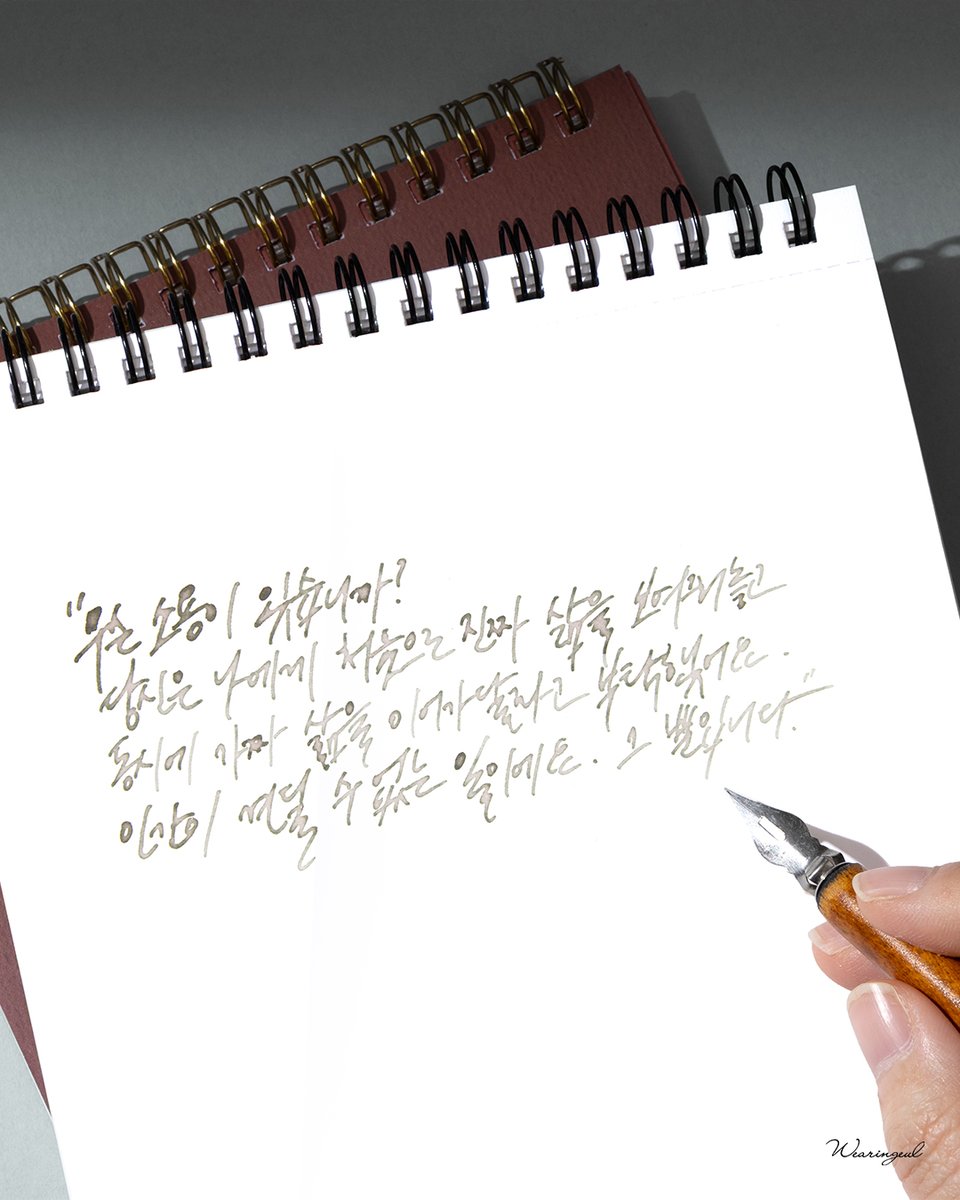 "무슨 소용이 있습니까?
당신은 나에게 처음으로 진짜 삶을 보여줬고
동시에 가짜 삶을 이어가달라고 부탁했어요.
인간이 견딜 수 없는 일이에요. 그 뿐입니다."
Wearingeul